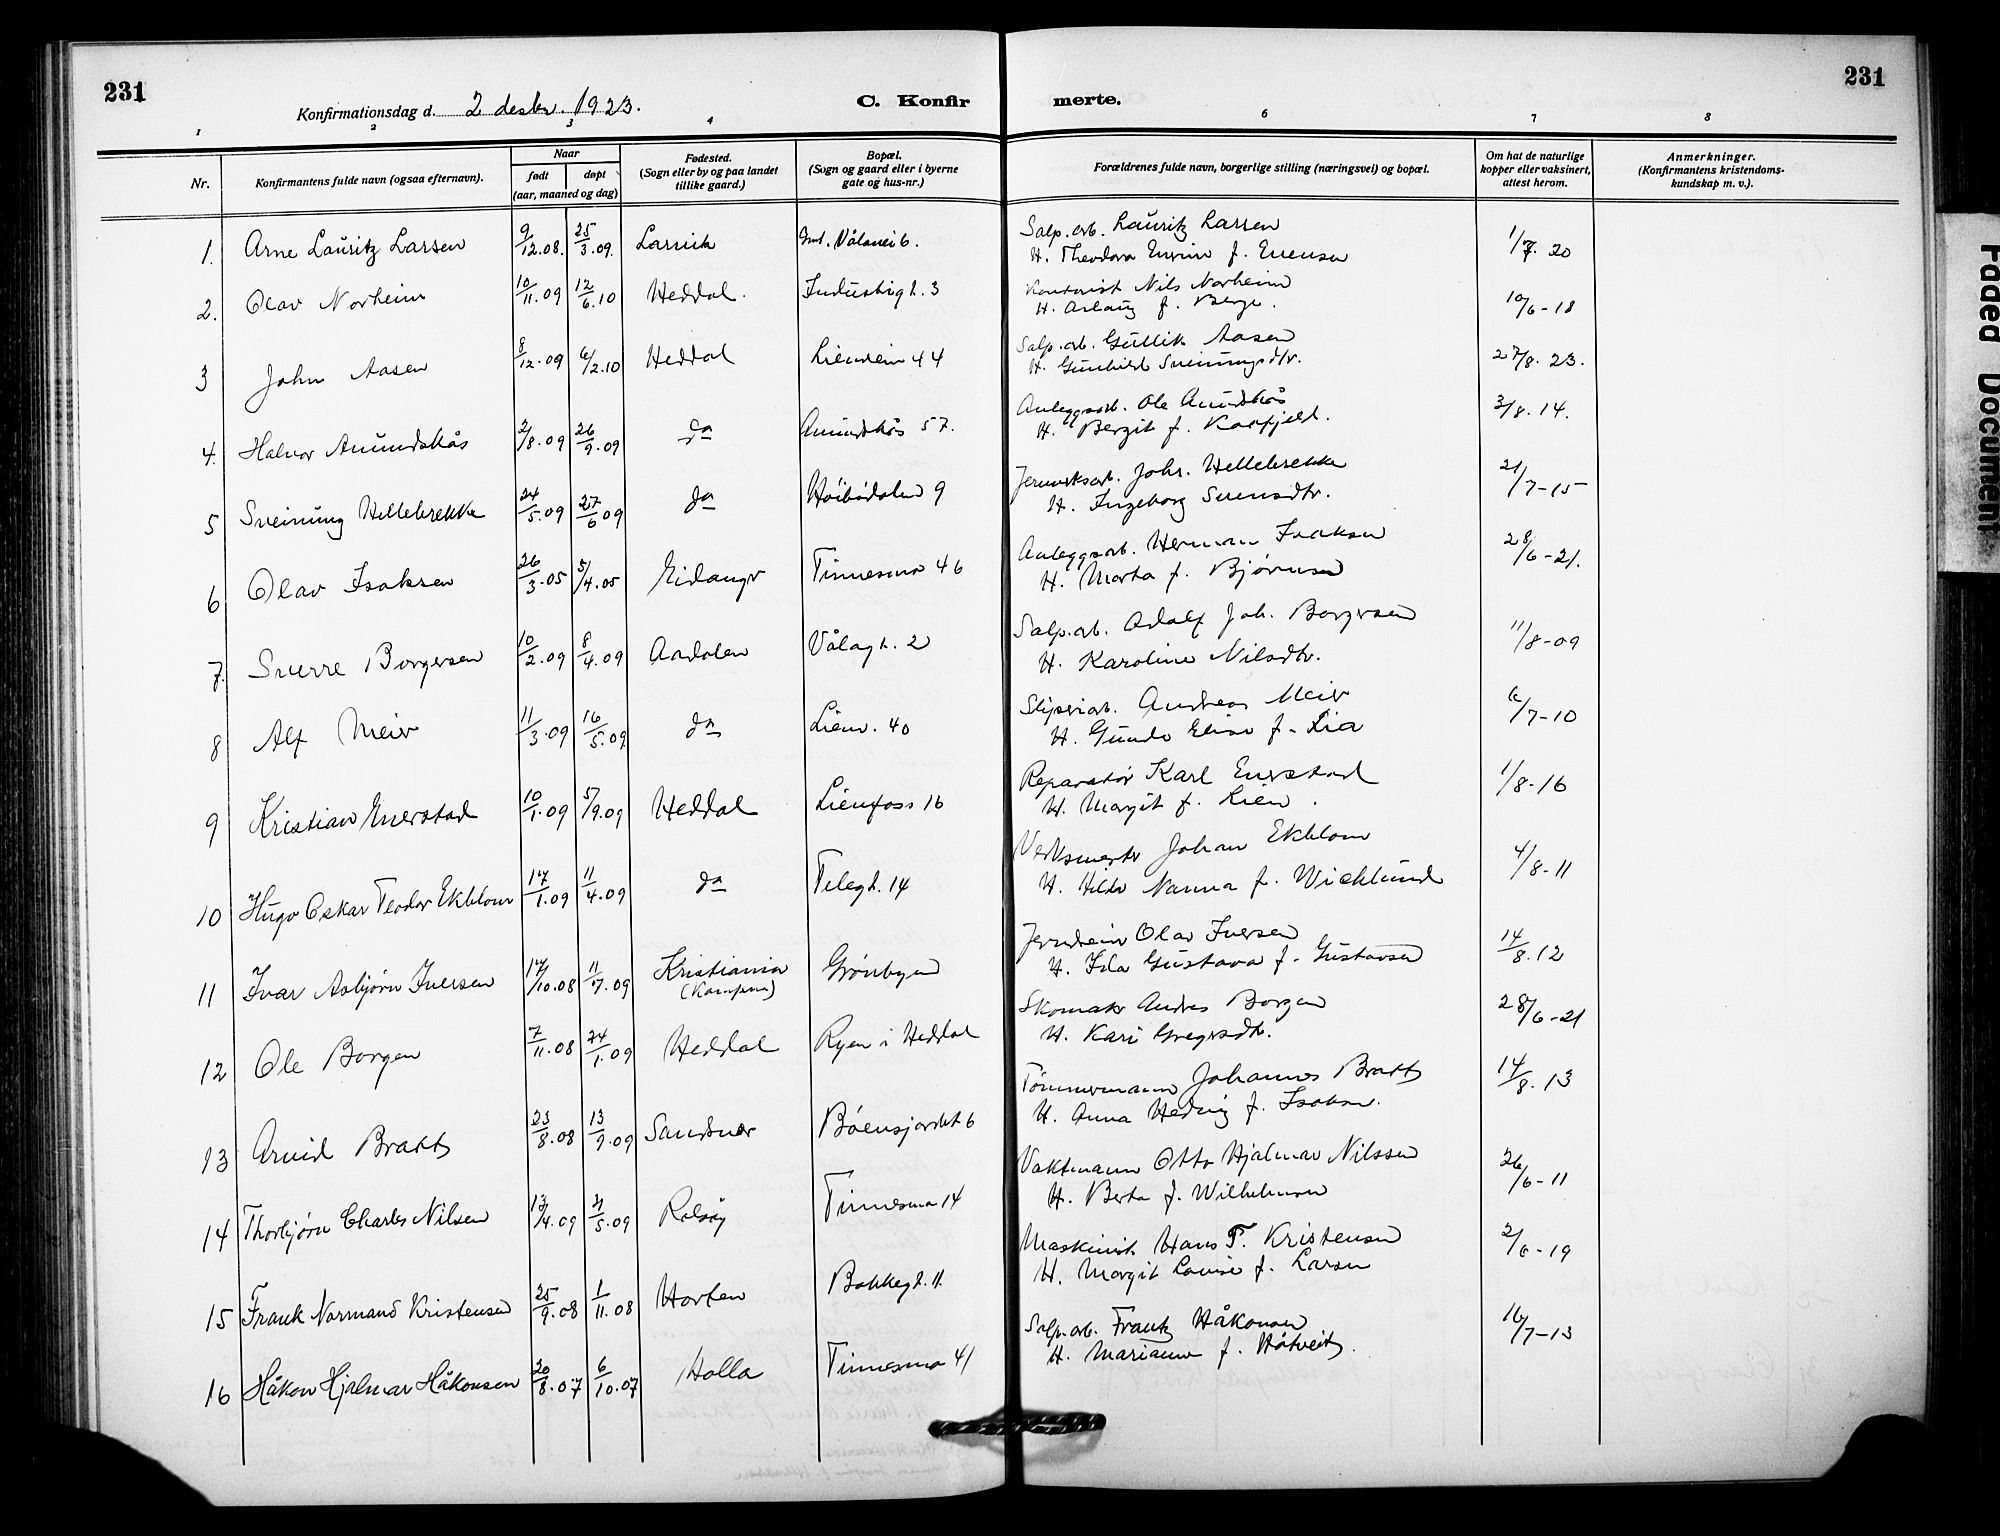 231
Konfirmationsdag d. 2 desbr. 1923.
C. Konfirmerte.
231
1 2 3 4 6 7 8
Nr.
Konfirmantens fulde navn (ogsaa efternavn).
Naar
født døpt
(aar, maaned og dag)
Fødested.
(Sogn eller by og paa landet
tillike gaard.)
Bopæl.
(Sogn og gaard eller i byerne
gate og hus-nr.)
Forældrenes fulde navn, borgerlige stilling (næringsvei) og bopæl.
Om hat de naturlige
kopper eller vaksinert,
attest herom.
Anmerkninger.
(Konfirmantens kristendoms-
kundskap m. v.).
1. Arne Lauritz Larsen 9/12.08. 25/3.09. Larvik Salp.arb. Lauritz Larsen 1/7. 20
H. Theodora f. Evensen
2. Olav Norheim 10/11.09 12/6.10 Heddal. Industrigt. 3 Nils Norheim 10/6-18
H. Aslaug f. Berge.
3 John Aasen 8/12.09 6/2.10 Heddal Lienvein 44 Salp.arb. Gullik Aasen 27/8. 23.
H. Gunhild Sveinungsdtr.
4. Halvor Amundskås 2/8.09 26/9.09 do Amundskås 57. Anleggsarb. Ole Amundskås 3/8. 14.
H. Bergit f.
5 Sveinung Hellebrekke 24/5.09 27/6 09 do Høibødalen 9 Johs. Hellebrekke 21/7-15
H. Ingeborg Svensdtr.
6 Olav Isaksen 26/3.05 5/4.05 Eidanger Tinnesmo 46 Anleggsarb. Herman Isaksen 28/6-21.
H. Marta f. Bjørnsen
7. Sverre Borgersen 10/2.09 8/4.09 Aadalen Vålagt. 2 Salp.arb. Adolf Joh. Borgersen 11/8-09
H. Karoline Nilsdtr.
8 Alf Meier 11/3.09 16/5.09 do Lienv. 40 Sliperiarb. Andreas Meier 6/7-10
H. Gunda Elise f. Lia
9 Kristian Enerstad 10/1.09 5/9.09 Heddal Lienfoss 16 Reparatør Karl Enerstad 1/8-16
H. Margit f. Lien.
10 Hugo Oskar Teodor Ekblom 17/1.09 11/4.09 do Telegt. 14 Verksmester Johan Ekblom 4/8-11
H. Hilda Nanna f. Wicklund
11 Ivar Asbjørn Iversen 17/10.08 11/7.09 Kristiania Grønbyen Olav Iversen 14/8.12
(Kampen) H. Ida Gustava f. Gustavsen
12 Ole Borgen 7/11.08 24/1.09 Heddal Ryen i Heddal Skomaker Andres Borgen 28/6-21
H. Kari Gregersdtr.
13 Arvid Bratts 23/8.08 13/9.09 Sandsvær Bøensjordet 6 Tømmermann Johannes Bratts 14/8. 13
H. Anna Hedvig f. Isaksen.
14 Thorbjørn Charles Nilsen 13/4.09 31/5.09 Rolsøy Tinnesmo 14 Vaktmann Otto Hjalmar Nilssen 26/6-11
H. Berta f. Wilhelmsen
15 Frank Normand Kristensen 25/9.08 1/11.08 Horten Bakkegt. 11. Maskinist Hans T. Kristensen 2/6-19
H. Margit Louise f. Larsen
16 Håkon Hjalmar Håkonsen 20/8.07 6/10.07 Holla Tinnesmo 41 Salp.arb. Frantz Håkonsen 16/7-13
H. Marianne f. Håtveit.
Faded Document